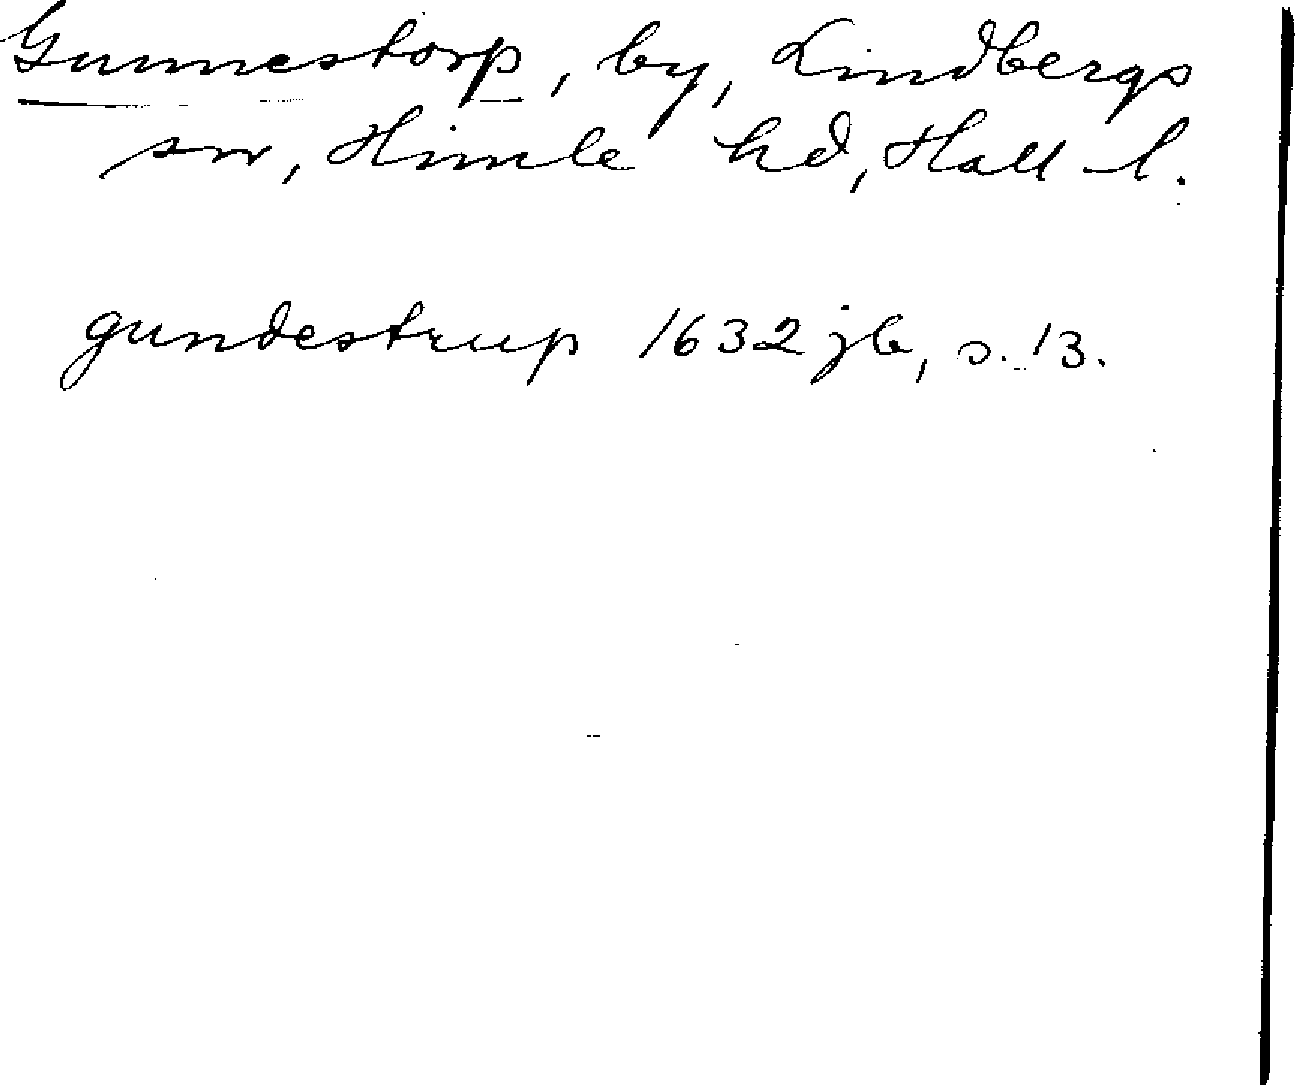 Gunnestorp, by, Lindbergs
sn, Himle hd, Hall l.
gundestrup 1632 jb, s. 13.